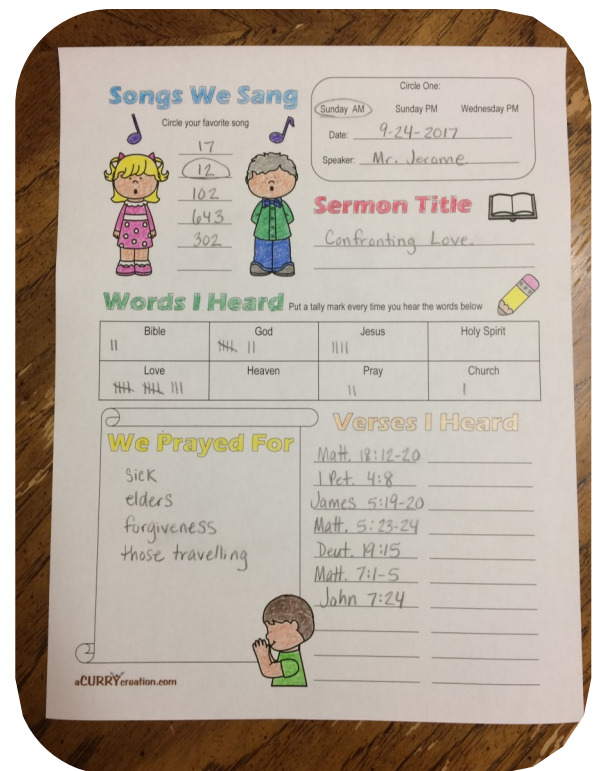 Songs We Sang
Circle your favorite song
17
12
102
643
302
Circle One:
Sunday AM Sunday PM Wednesday PM
Date: 9-24-2017
Speaker: Mr. Jerome
Sermon Title
Confronting Love
Words I Heard Put a tally mark every time you hear the words below
Bible God Jesus Holy Spirit
Love Heaven Pray Church
We Prayed For
sick
elders
forgiveness
those travelling
Verses I Heard
Matt. 18:12-20
1 Pet. 4:8
James 5:19-20
Matt. 5:23-24
Deut. 19:15
Matt. 7:1-5
John 7:24
aCURRYcreation.com